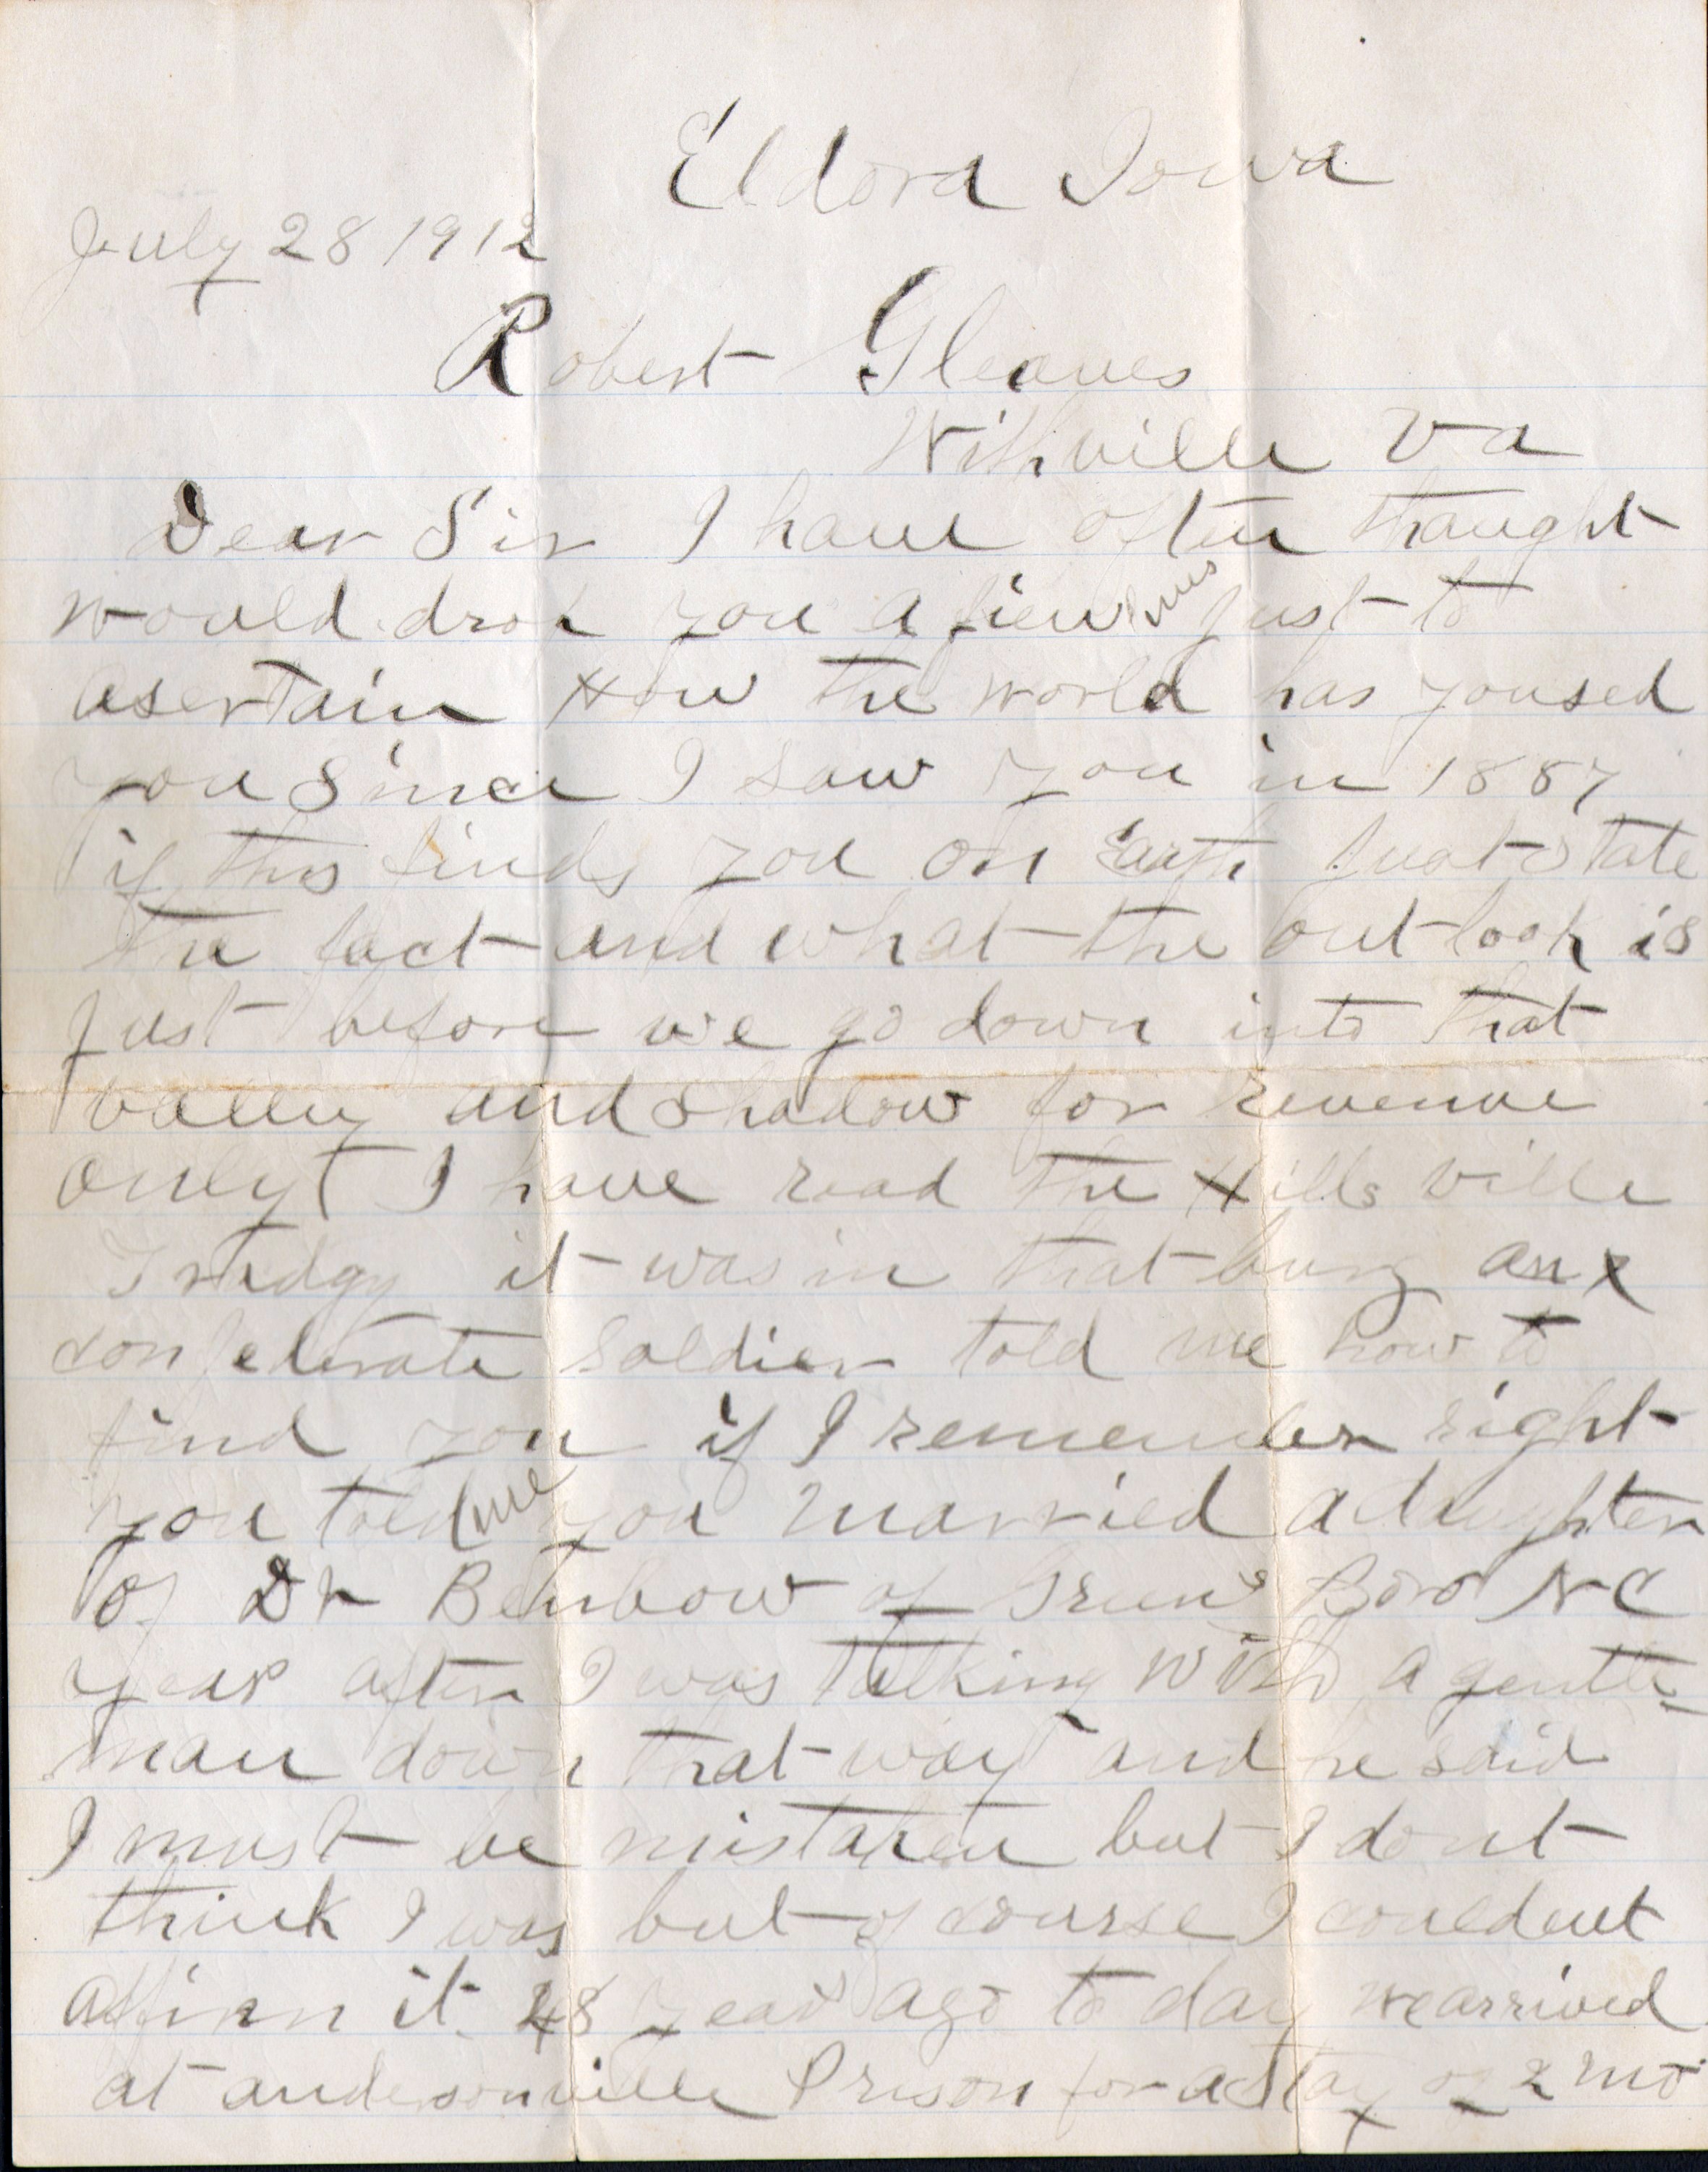 Eldora Iowa
July 28 1912
Robert Gleaves
Withville Va
Dear Sir I have often thaught
would drop you a fiew lines just to
asertain How the world has yoused
you Since I saw you in 1887
if this finds you on Earth just state
the fact and what the outlook is
just before we go down into that
valley and shadow for revenue
only I have read the Hills ville
Tradgy it was in that burg an x
confederate soldier told me how to
find you if I remember right
you told me you married a daughter
of Dr Benbow of Greens Boro NC
years after I was talking with a gentle
man down that way and he said
I must be mistaken but I dont
think I was but of course I couldent
affirm it. 48 years ago to day we arrived
at andersonville Prison for a stay of 2 mo